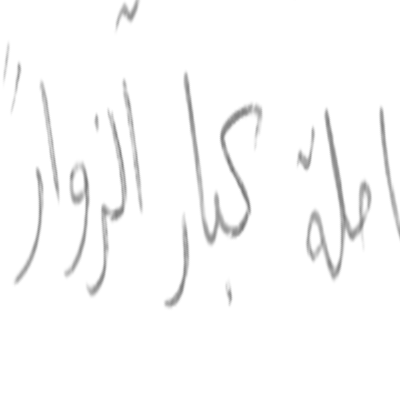 املة كبار الزوار"